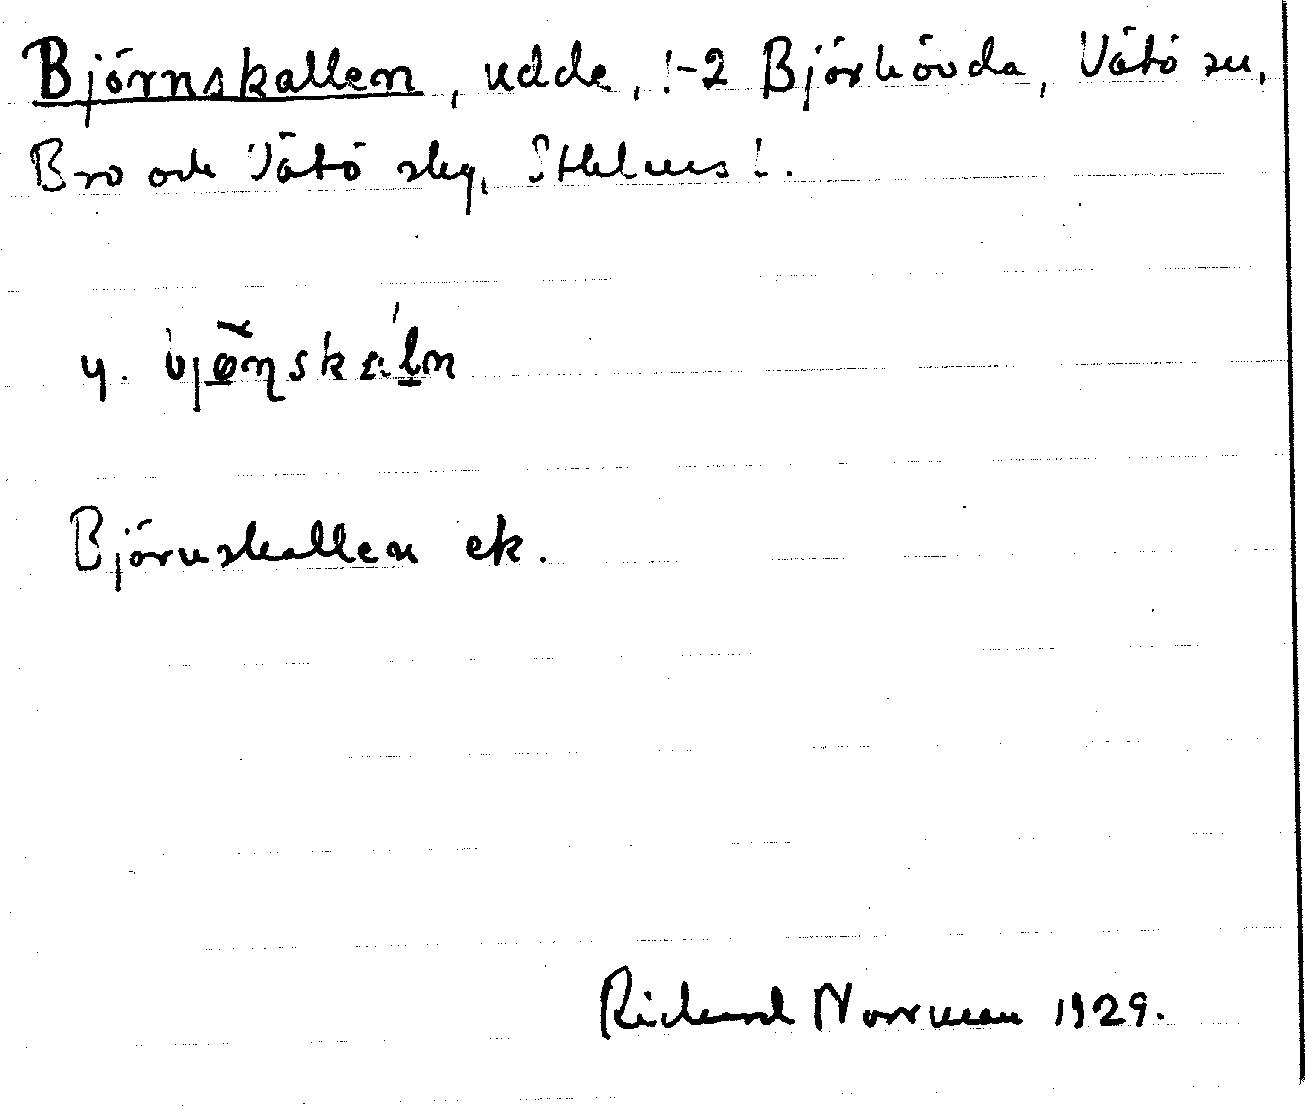 Björnskallen, udde, 1-2 Björhövda, Vätö sn,
Bro och Vätö skg, Sthlms l.
Björnskallen ek.
Rickard Norrman 1929.